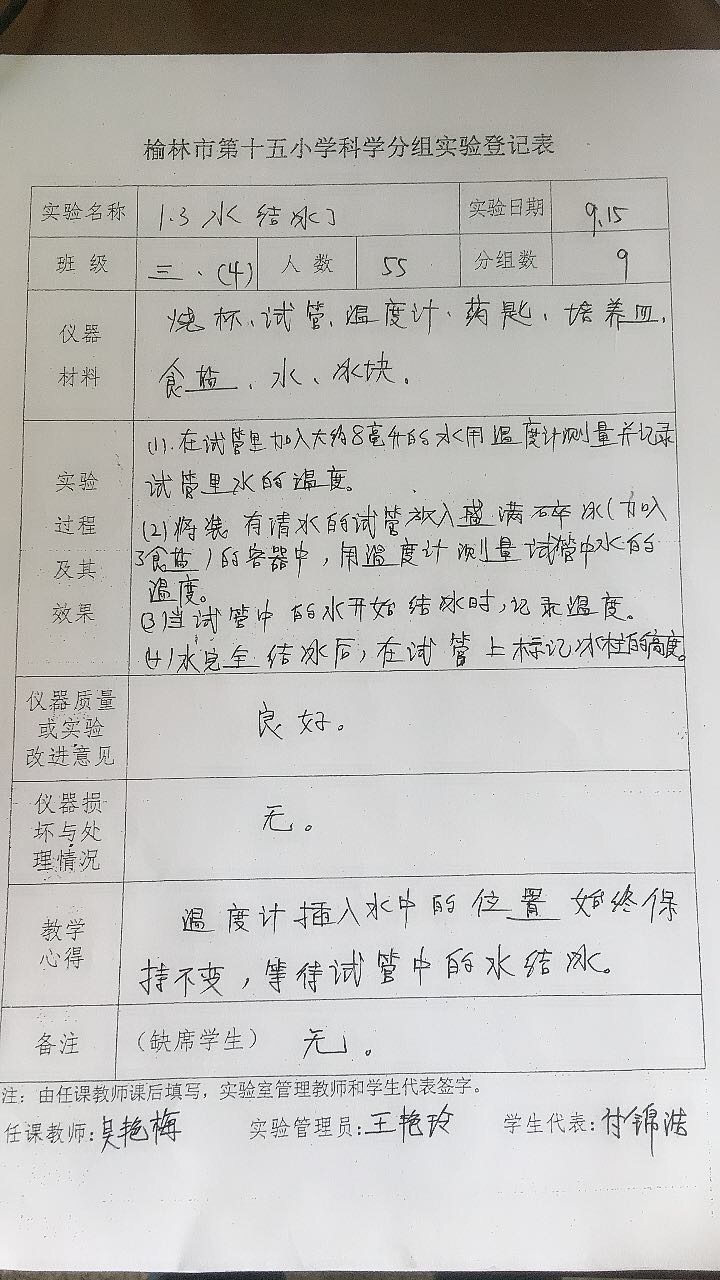 榆林市第十五小学科学分组实验登记表
实验名称 1.3 水结冰了 实验日期 9.15
班 级 三.(4) 人 数 55 分组数 9
仪器 烧杯、试管、温度计、药匙、培养皿、
材料 食盐、水、冰块。
(1).在试管里加入大约8毫升的水用温度计测量并记录
实验 试管里水的温度。
过程 (2)将装有清水的试管放入盛满碎冰(加入
及其 了食盐)的容器中,用温度计测量试管中水的
温度。
效果 (3)当试管中的水开始结冰时,记录温度。
(4)水完全结冰后,在试管上标记冰柱的高度。
仪器质量
或实验 良好。
改进意见
仪器损
坏与处 无。
理情况
教学 温度计插入水中的位置始终保
心得 持不变,等待试管中的水结冰。
备注 (缺席学生) 无。
注:由任课教师课后填写,实验室管理教师和学生代表签字。
任课教师:吴艳梅 实验管理员:王艳玲 学生代表:付锦浩